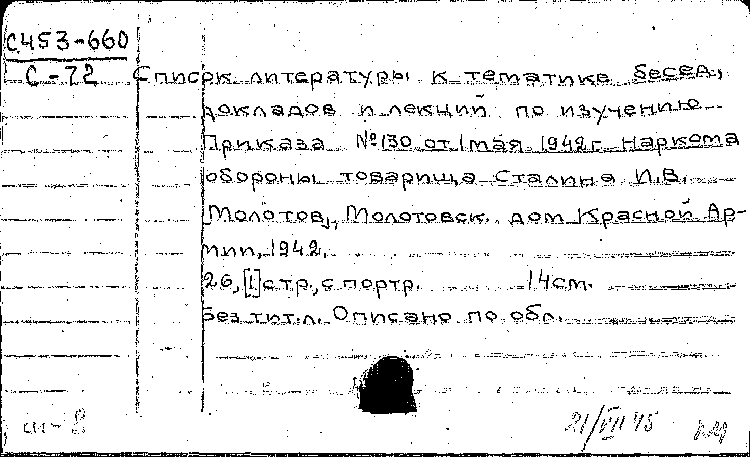 С453-660
С-72 Список литературы к тематике бесед,
докладов и лекций по изучению
Приказа №130 от 1 мая 1942 г. Наркома
обороны товарища Сталина И.В.
[Молотов], Молотовск. дом Красной Ар-
мии, 1942.
26,[1] стр., с портр. 14см.
Без тит.л. Описано по обл.
ш-8
21/VII 45